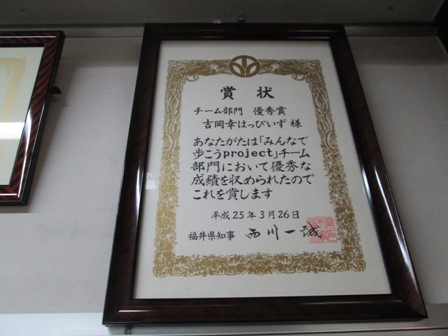 賞状
チーム部門 優秀賞
吉岡幸はっぴいず 様
あなたがたは「みんなで
歩こうproject」チーム
部門において優秀な
成績を収められたので
これを賞します
平成25年3月26日
福井県知事 西川一誠